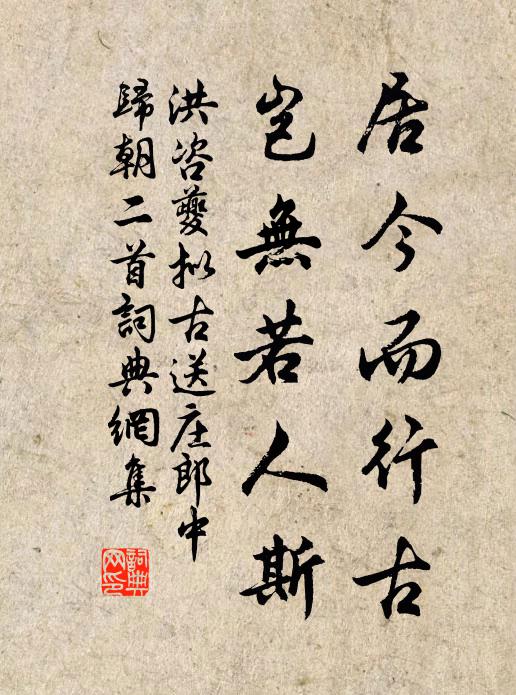 居今而行古
豈無若人斯
洪咨夔拟古送庄郎中
歸朝二首詞典網集
詞典网印